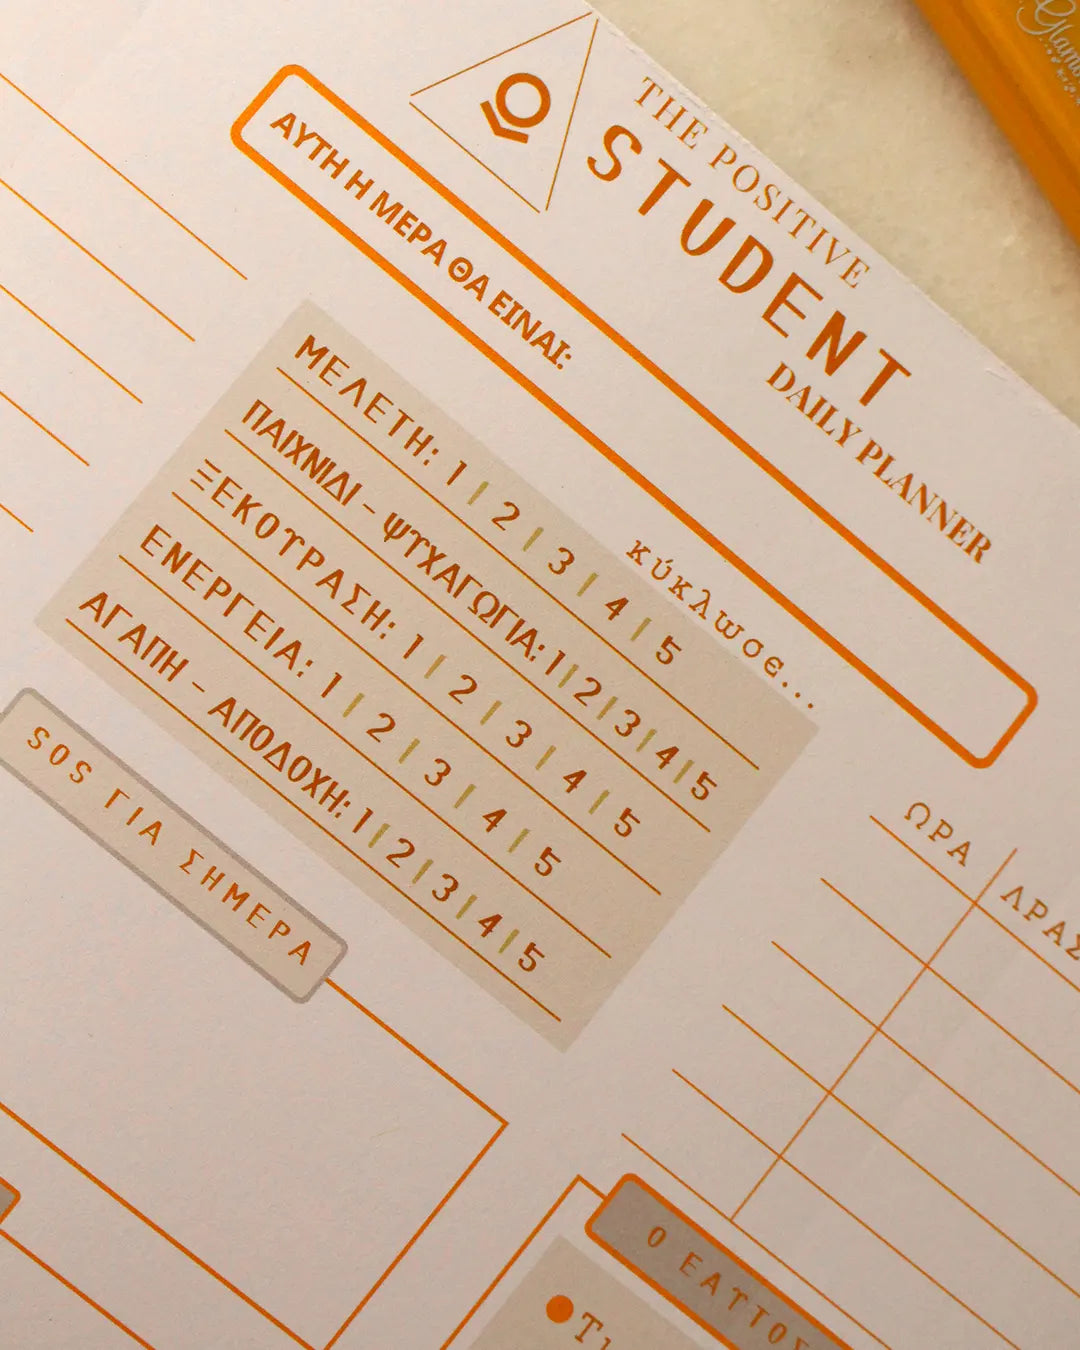 THE POSITIVE
STUDENT
DAILY PLANNER
ΑΥΤΗ Η ΜΕΡΑ ΘΑ ΕΙΝΑΙ:
κύκλωσε...
ΜΕΛΕΤΗ: 1 | 2 | 3 | 4 | 5
ΠΑΙΧΝΙΔΙ - ΨΥΧΑΓΩΓΙΑ: 1 | 2 | 3 | 4 | 5
ΞΕΚΟΥΡΑΣΗ: 1 | 2 | 3 | 4 | 5
ΕΝΕΡΓΕΙΑ: 1 | 2 | 3 | 4 | 5
ΑΓΑΠΗ - ΑΠΟΔΟΧΗ: 1 | 2 | 3 | 4 | 5
SOS ΓΙΑ ΣΗΜΕΡΑ
ΩΡΑ
Ο ΕΑΥΤΟΣ